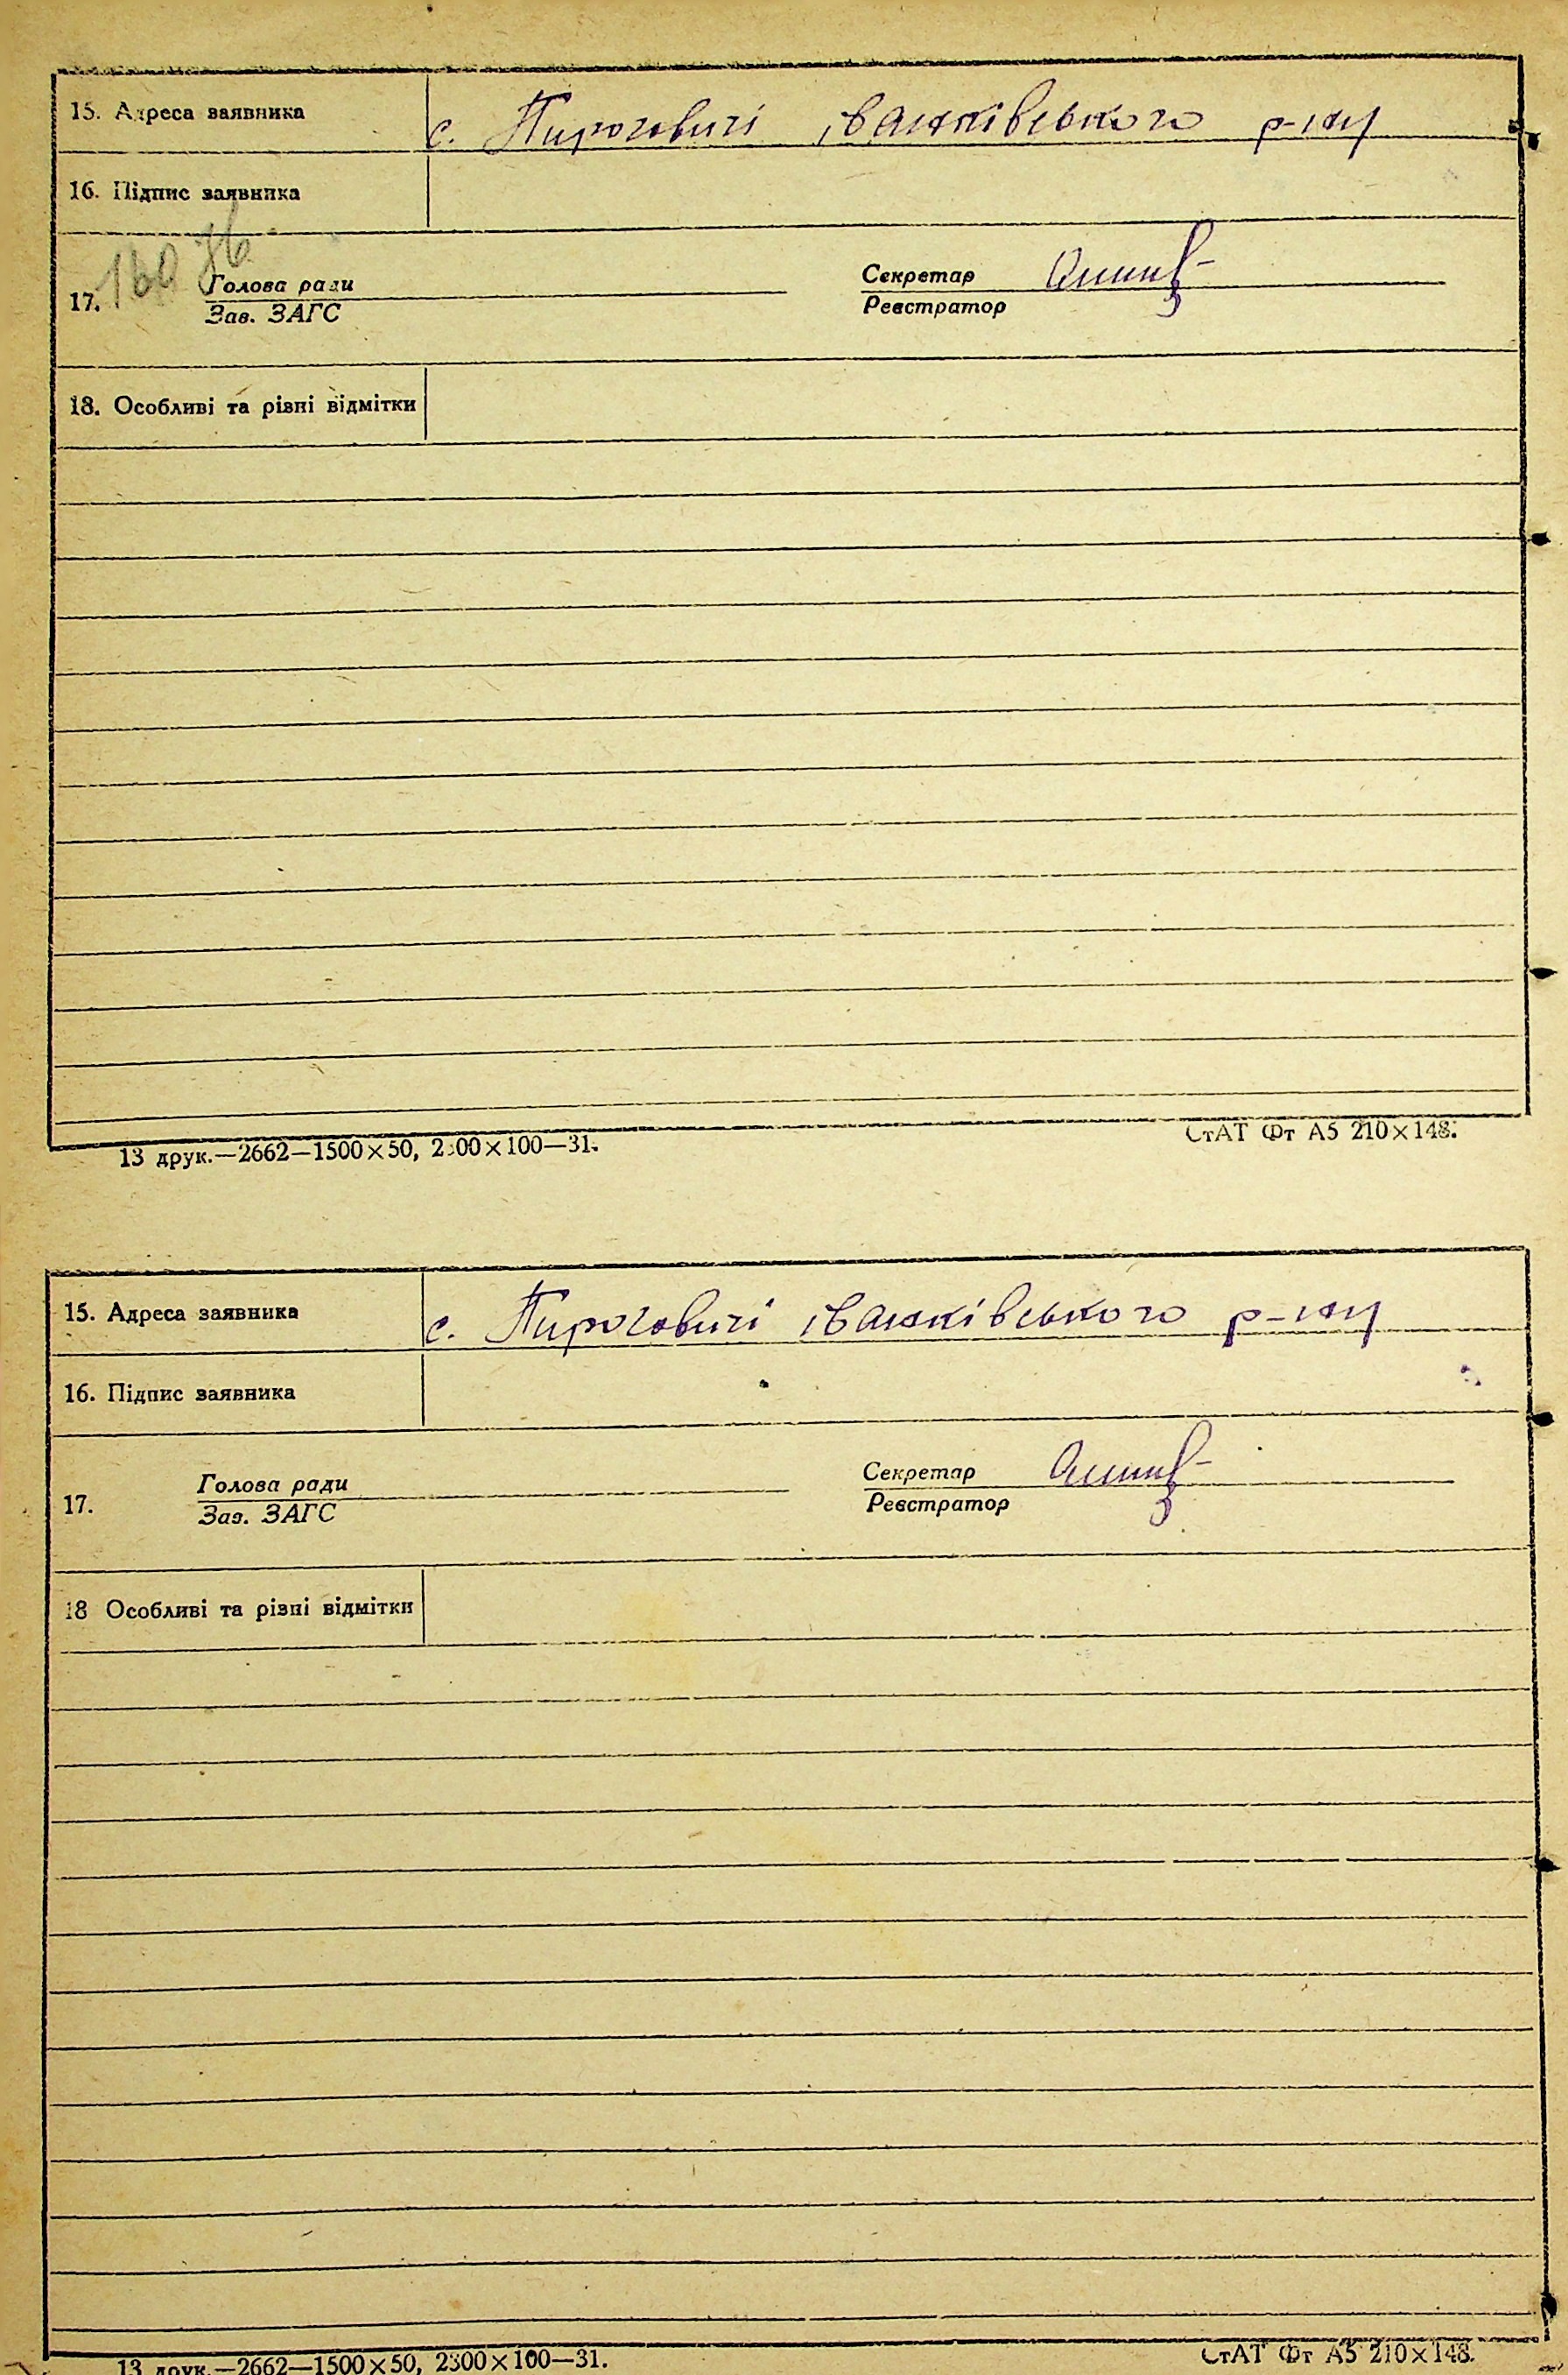 15. Адреса заявника с. Пироговичі іванківського р-ну
16. Підпис заявника
160 зв.
Голова ради Секретар
17. Зав. ЗАГС Реєстратор
18. Особливі та різні відмітки
13 друк.—2662—1500×50, 2300×100—31. СтАТ Фт А5 210×148.
15. Адреса заявника с. Пироговичі іванківського р-ну
16. Підпис заявника
Голова ради Секретар
17. Зав. ЗАГС Реєстратор
18 Особливі та різні відмітки
13 друк.—2662—1500×50, 2300×100—31. СтАТ Фт А5 210×148.